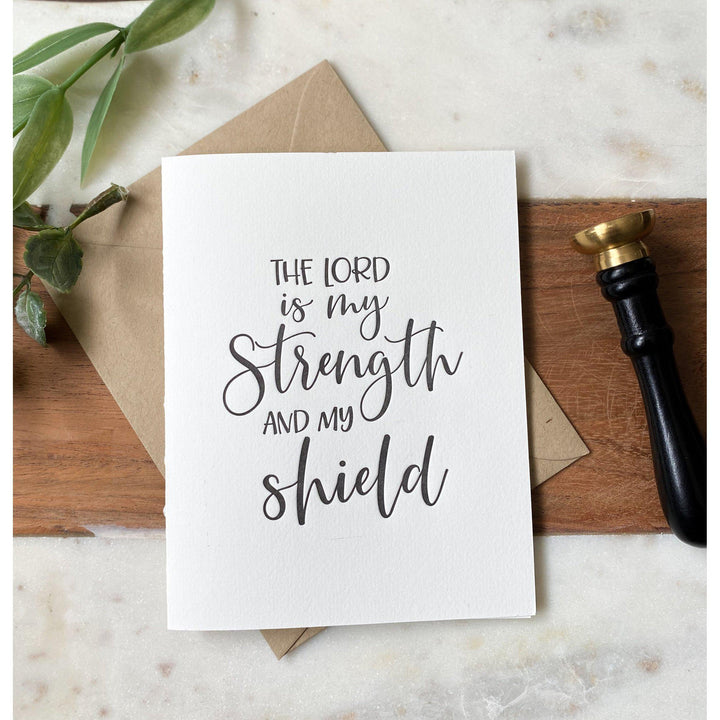 THE LORD
is my
Strength
AND MY
shield